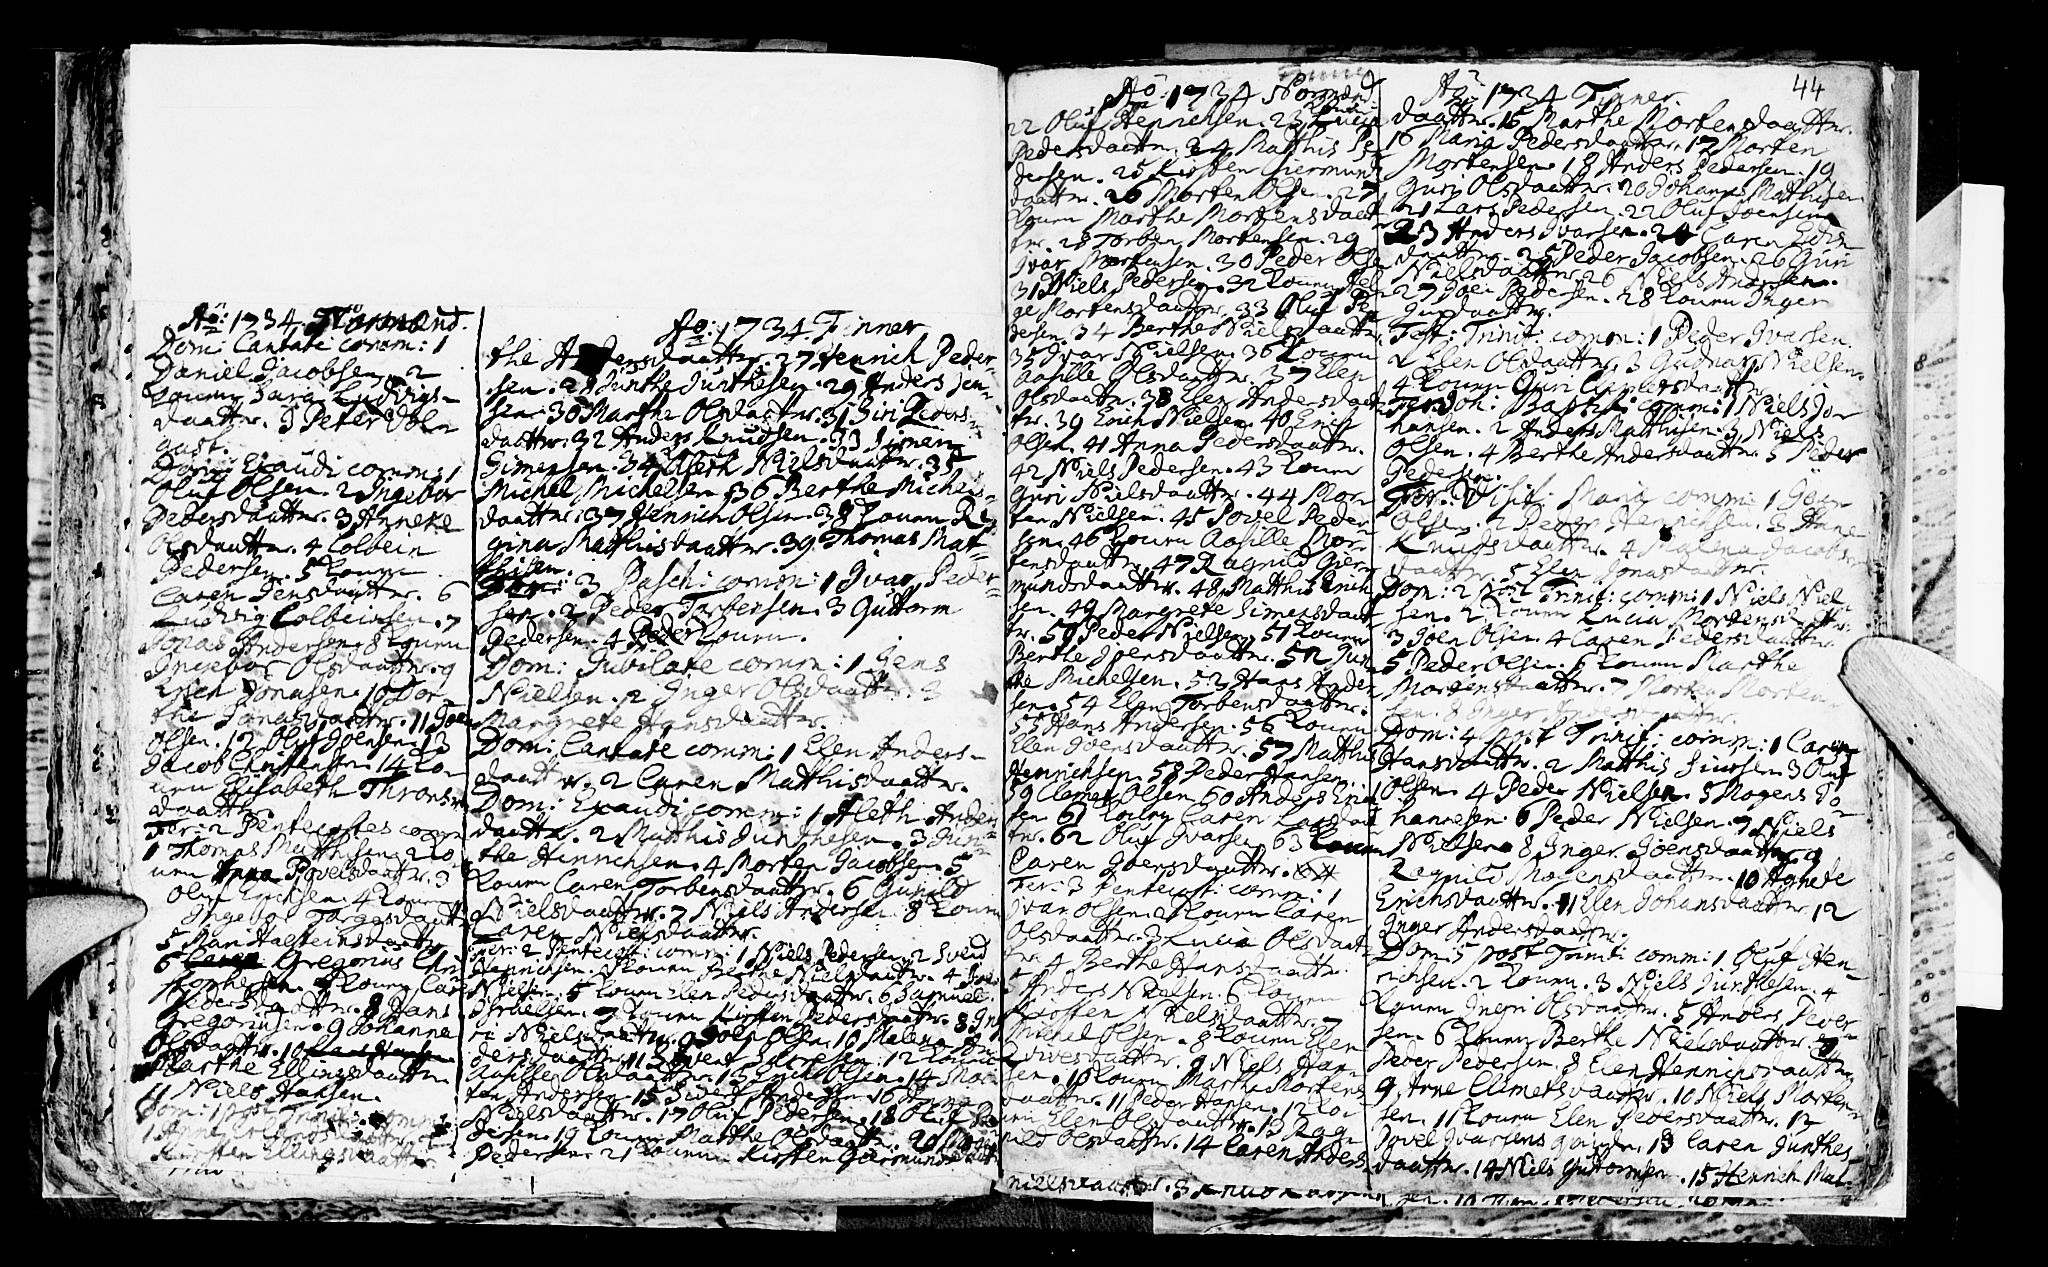 Ao: 1734. Normænd.
Dom: Cantate comm: 1
Daniel Jacobsen. 2
Kounn Sara Ludvigs-
daatter. 3 Peter Voln
gast.
Dom: Exaudi comm: 1
Oluf Olsen. 2 Ingebor
Pedersdaatter. 3 Anneke
Olsdaatter. 4 Colbein
Pedersen. 5 Kounn
Caren Jensdaatter. 6
Ludvig Colbeinsen. 7
Jonas Andersen. 8 Kounn
Ingebor Olsdaatter. 9
Erich Jonasen. 10 Dor-
the Jonasdaatter. 11 Joen
Olsen. 12 Oluf Joensen. 13
Jacob Christensen. 14 Ko-
unn Elisabeth Throns-
daatter.
Fer: 2 Pentecostes comm
1 Thomas Matthisen. 2 Ko-
unn Anna Povelsdaatter. 3
Oluf Erichsen. 4 Kounn
Ingebor Torgersdaatt
5 Mari Halsteinsdaatter
6 Gregorius Chri
stophersen. 7 Kounn Care
Pedersdaatter. 8 Hans
Gregoriusen. 9 Johanna
Olsdaatter. 10
Marthe Ellingsdaatter
11 Niels Hansen.
Dom: 1 post Trinit: comm:
1 Anne
Kirsten Ellingsdaatter.
Ao: 1734. Finner
the daatter. 27 Henrich Peder-
sen. 28 Junthe Junthesen. 29 Anders Jen-
sen. 30 Marthe Olsdaatter. 31 Siri Peders-
daatter. 32 Anders Knudsen. 33 Simen
Simensen. 34 Aleth Nielsdaatter. 35
Michel Michelsen. 36 Berthe Michels-
daatter. 37 Henrich Olsen. 38 Kounn Re-
gina Matthisdaatter. 39 Thomas Mat-
thisen.
Fer: 3 Pasch: comm: 1 Ivar Peder-
sen. 2 Peder Torbensen. 3 Guttorm
Pedersen. 4 Peder Kounn.
Dom: Jubilate comm: 1 Jens
Nielsen. 2 Inger Olsdaatter. 3
Margrete Hansdaatter.
Dom: Cantate comm: 1 Elen Anders-
daatter. 2 Caren Matthisdaatter.
Dom: Exaudi comm: 1 Aleth Anders-
daatter. 2 Matthis Junthesen. 3 Jun-
the Hinrichsen. 4 Morten Jacobsen. 5
Kounn Caren Torbensdaatter. 6 Gunild
Nielsdaatter. 7 Niels Andersen. 8 Kounn
Caren Nielsdaatter.
Fer: 2 Pentecost: comm: 1 Niels Pedersen. 2 Svend
Henrichsen. 3 Kounn Berthe Nielsdaatter. 4
Nielsen. 5 Kounn Elen Pedersdaatter. 6 Samuel
Isralsen. 7 Kounn Kirsten Pedersdaatter. 8
ri Nielsdaatter. 9 Joen Olsen. 10 Malena
dersdaatter. 11 Svend 12 Kounn
Aasille Olsdaatter. 13 Erich Olsen. 14 Mor
ten Andersen. 15 Sivert Andersen. 16 Anna
Nielsdaatter. 17 Oluf Pedersen. 18 Oluf Pe
dersen. 19 Kounn Marthe Olsdaatter. 20
Pedersen. 21 Kounn Kirsten Giermundsdaatt
Ao: 1734 Normænd
22 Oluf Henrichsen. 23 Kounn Lucia
Pedersdaatter. 24 Matthis Pe-
dersen. 25 Kirsten Giermunds
daatter. 26 Morten Olsen. 27
Kounn Marthe Mortensdaat
ter. 28 Torben Mortensen. 29
Ivar Mortensen. 30 Peder Olse
31 Niels Pedersen. 32 Kounn Hel
ge Mortensdaatter. 33 Oluf Pe
dersen. 34 Berthe Nielsdaatter.
35 Ivar Nielsen. 36 Kounn
Aasille Olsdaatter. 37 Elen
Olsdaatter. 38 Elen Andersdaat
ter. 39 Erich Nielsen. 40 Erich
Olsen. 41 Anna Pedersdaatter.
42 Niels Pedersen. 43 Kounn
Guri Nielsdaatter. 44 Mor-
ten Nielsen. 45 Povel Peder
sen. 46 Kounn Aasille Mor-
tensdaatter. 47 Ragnild Gier
mundsdaatter. 48 Matthis Erich
sen. 49 Margrete Simensdaat
ter. 50 Peder Nielsen. 51 Kounn
Berthe Joensdaatter. 52 Jun
the Michelsen. 53 Hans Ander
sen. 54 Elen Torbensdaatter.
55 Hans Andersen. 56 Kounn
Elen Joensdaatter. 57 Matthis
Henrichsen. 58 Peder Hansen.
59 Clemet Olsen. 60 Anders Erich
sen. 61 Kounn Caren
ter. 62 Oluf Ivarsen. 63 Kounn
Caren Joensdaatter. 64
Fer: 3 Pentecost: comm: 1
Ivar Olsen. 2 Kounn Caren
Olsdaatter. 3 Lucia Olsdaat
ter. 4 Berthe Hansdaatter.
5 Anders Nielsen. 6 Kounn
Kirsten Nielsdaatter. 7
Michel Olsen. 8 Kounn Elen
daatter. 9 Niels Han-
sen. 10 Kounn Marthe Mortens
daatter. 11 Peder Hansen. 12 Ko-
unn Elen Olsdaatter. 13 Rag-
nild Olsdaatter. 14 Caren Anders
Nielsdaatter. 3 Knud
Ao: 1734 Finner 44
daatter. 15 Marthe Mortensdaatter.
16 Maria Pedersdaatter. 17 Morten
Mortensen. 18 Anders Pedersen. 19
Guri Olsdaatter. 20 Johannes Matthisen
21 Lars Pedersen. 22 Oluf Joensen
23 Anders Ivarsen. 24 Caren Edis
daatter. 25 Peder Jacobsen. 26 Guri
Nielsdaatter. 26 Niels Andersen.
27 Joen Pedersen. 28 Kounn Inger
Guldaatter.
Fest: Trinit: comm: 1 Peder Ivarsen.
2 Elen Olsdaatter. 3 Gudmar Nielsen.
4 Kounn Guri Clemetsdaatter.
Fer: Joh: Baptist: comm: 1 Niels Jo-
hansen. 2 Anders Matthisen. 3 Niels
Olsen. 4 Berthe Andersdaatter. 5 Peder
Pedersen.
Fer: Visit: Mariæ comm: 1 Joen
Olsen. 2 Peder Henrichsen. 3 Anne
Knudsdaatter. 4 Malena Jacobs
daatter. 5 Elen Jonasdaatter.
Dom: 2 post Trinit: comm: 1 Niels Niel
sen. 2 Kounn Lucia Mortensdaatter.
3 Joen Olsen. 4 Caren Pedersdaatter.
5 Peder Olsen. 6 Kounn Marthe
Mortensdaatter. 7 Morten Morten
sen. 8 Inger Andersdaatter.
Dom: 4 post Trinit: comm: 1 Caren
Hansdaatter. 2 Matthis Siursen. 3 Oluf
Olsen. 4 Peder Nielsen. 5 Mogens Jo-
hannesen. 6 Peder Nielsen. 7 Niels
Nielsen. 8 Inger Joensdaatter. 9
Ragnild Mogensdaatter. 10 Agnede
Erichsdaatter. 11 Elen Johansdaatter. 12
Inger Andersdaatter.
Dom: 5 post Trinit: comm: 1 Oluf Hen-
richsen. 2 Kounn. 3 Niels Junthesen. 4
Kounn Inger Olsdaatter. 5 Anders Peder
sen. 6 Kounn Berthe Nielsdaatter. 7
Peder Pedersen. 8 Elen Henningsdaatter
9 Arne Clemetsdaatter. 10 Niels Morten
sen. 11 Kounn Elen Pedersdaatter. 12
Povel Ivarsens 13 Caren Junthes
daatter. 14 Niels Guttormsen. 15 Henrich Mat-